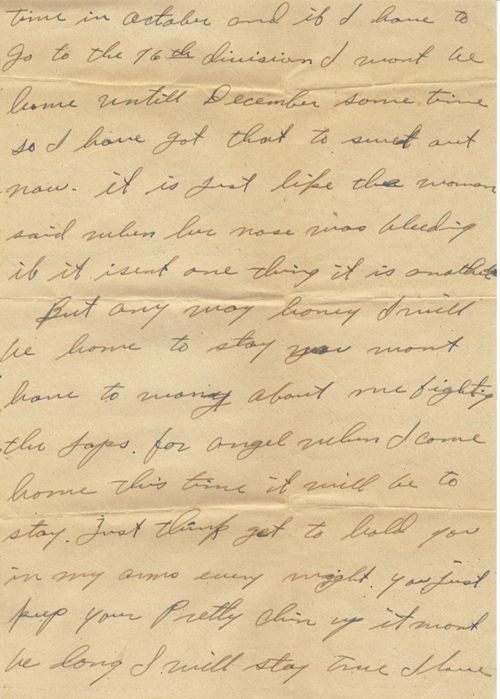 time in october and if I have to
go to the 76th division I wont be
home untill December some time
so I have got that to sweat out
now. it is just like the woman
said when her nose was bleeding
if it isent one thing it is another
But any way honey I will
be home to stay you wont
have to worry about me fighting
the Japs. for angel when I come
home this time it will be to
stay. Just think get to hold you
in my arms every night. you just
keep your Pretty chin up it wont
be long I will stay true I love